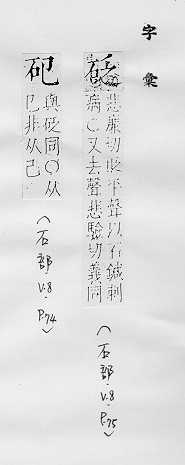 字彙
砭
悲廉切貶平聲以石鍼刺
病〇又去聲悲驗切義同
（石部.V.8.P.75）
與砭同〇从
非从己
（石部.V.8.P.74）